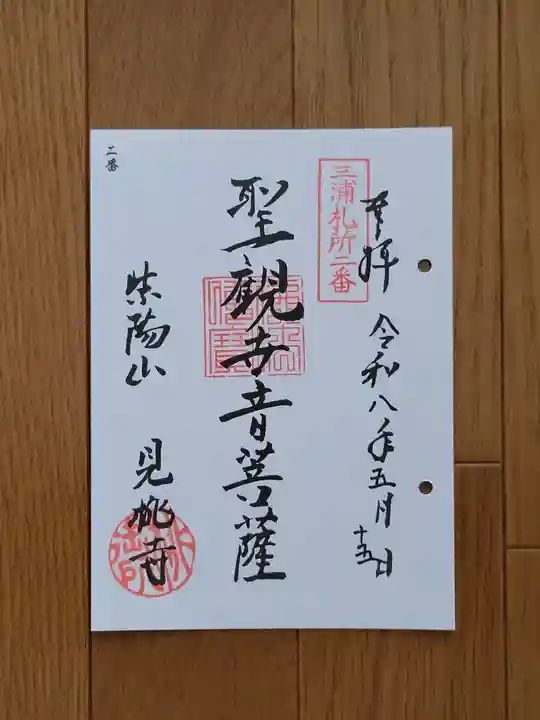 奉拝 令和八年五月十五日
三浦札所二番
聖観世音菩薩
紫陽山 見桃寺
二番